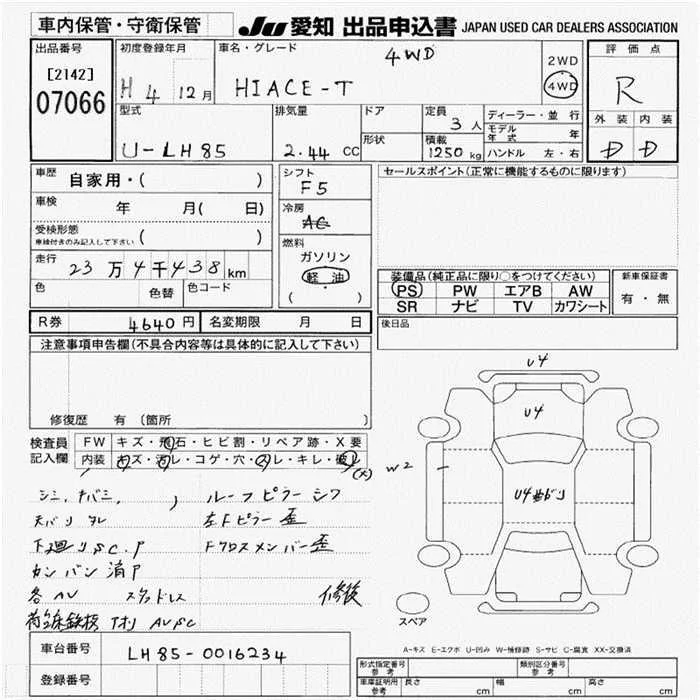 車内保管・守衛保管 JU 愛知 出品申込書 JAPAN USED CAR DEALERS ASSOCIATION
出品番号 初度登録年月 車名・グレード 4WD 2WD 評価点
[2142] 07066 H 4 12月 HIACE-T 4WD R
型式 排気量 ドア 定員 3人 ディーラー・並行 外装 内装
モデル年式 年
U-LH85 2.44 CC 形状 積載 1250kg ハンドル 左・右 D D
車歴 自家用・( ) シフト F5 セールスポイント(正常に機能するものに限ります)
車検 年 月( 日) 冷房 AC
受検形態 車検付きのみ記入して下さい ( )
燃料 ガソリン 軽油 ( )
走行 23万4千438km
色 色替 色コード
装備品(純正品に限り○をつけてください) 新車保証書
PS PW エアB AW 有・無
SR ナビ TV カワシート
R券 4640円 名変期限 月 日 後日品
注意事項申告欄(不具合内容等は具体的に記入して下さい)
修復歴 有 (箇所 )
検査員記入欄 FW キズ・飛石・ヒビ割・リペア跡・X要
内装 キズ・汚レ・コゲ・穴・スレ・キレ・破レ
(大)
U4
U4
W2
U4
ルーフピラーシワ
天バリ
左Fピラー歪
下廻りSC.P
Fクロスメンバー歪
カンバン消P
各AU スタッドレス 修復
スペア
A=キズ E=エクボ U=凹み W=補修跡 S=サビ C=腐食 XX=交換済
車台番号 LH85-0016234
登録番号
形式指定番号 参考 類別区分番号 参考
車庫証明用 参考 長さ cm 幅 cm 高さ cm